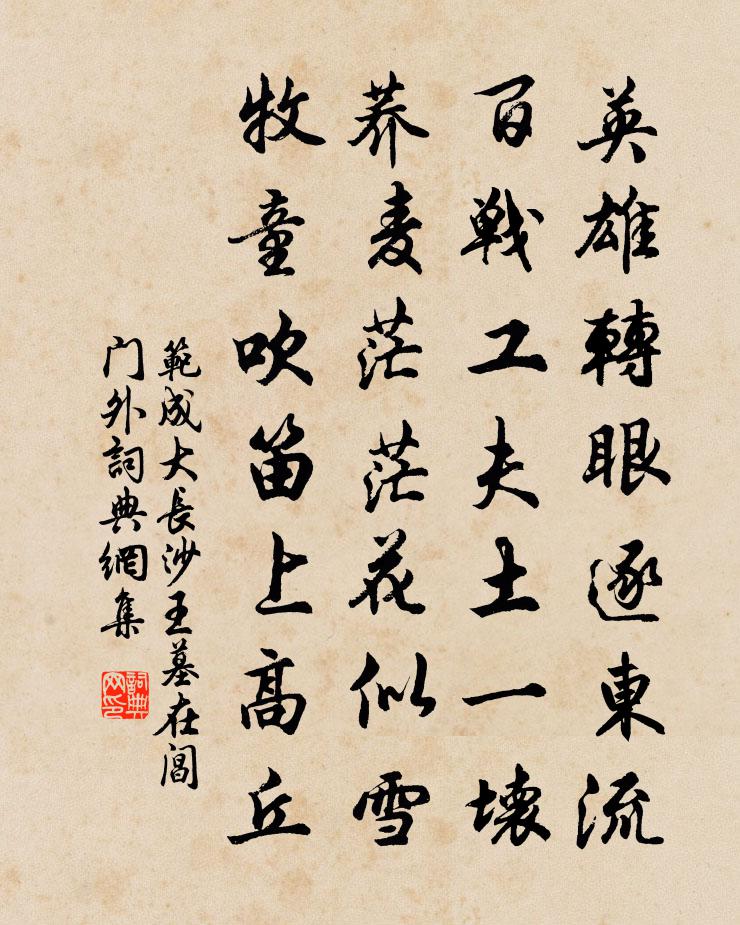 英雄轉眼逐東流
百戦工夫土一壞
荞麦茫茫花似雪
牧童吹笛上高丘
範成大長沙王墓在閶
门外詞典網集
詞典网印